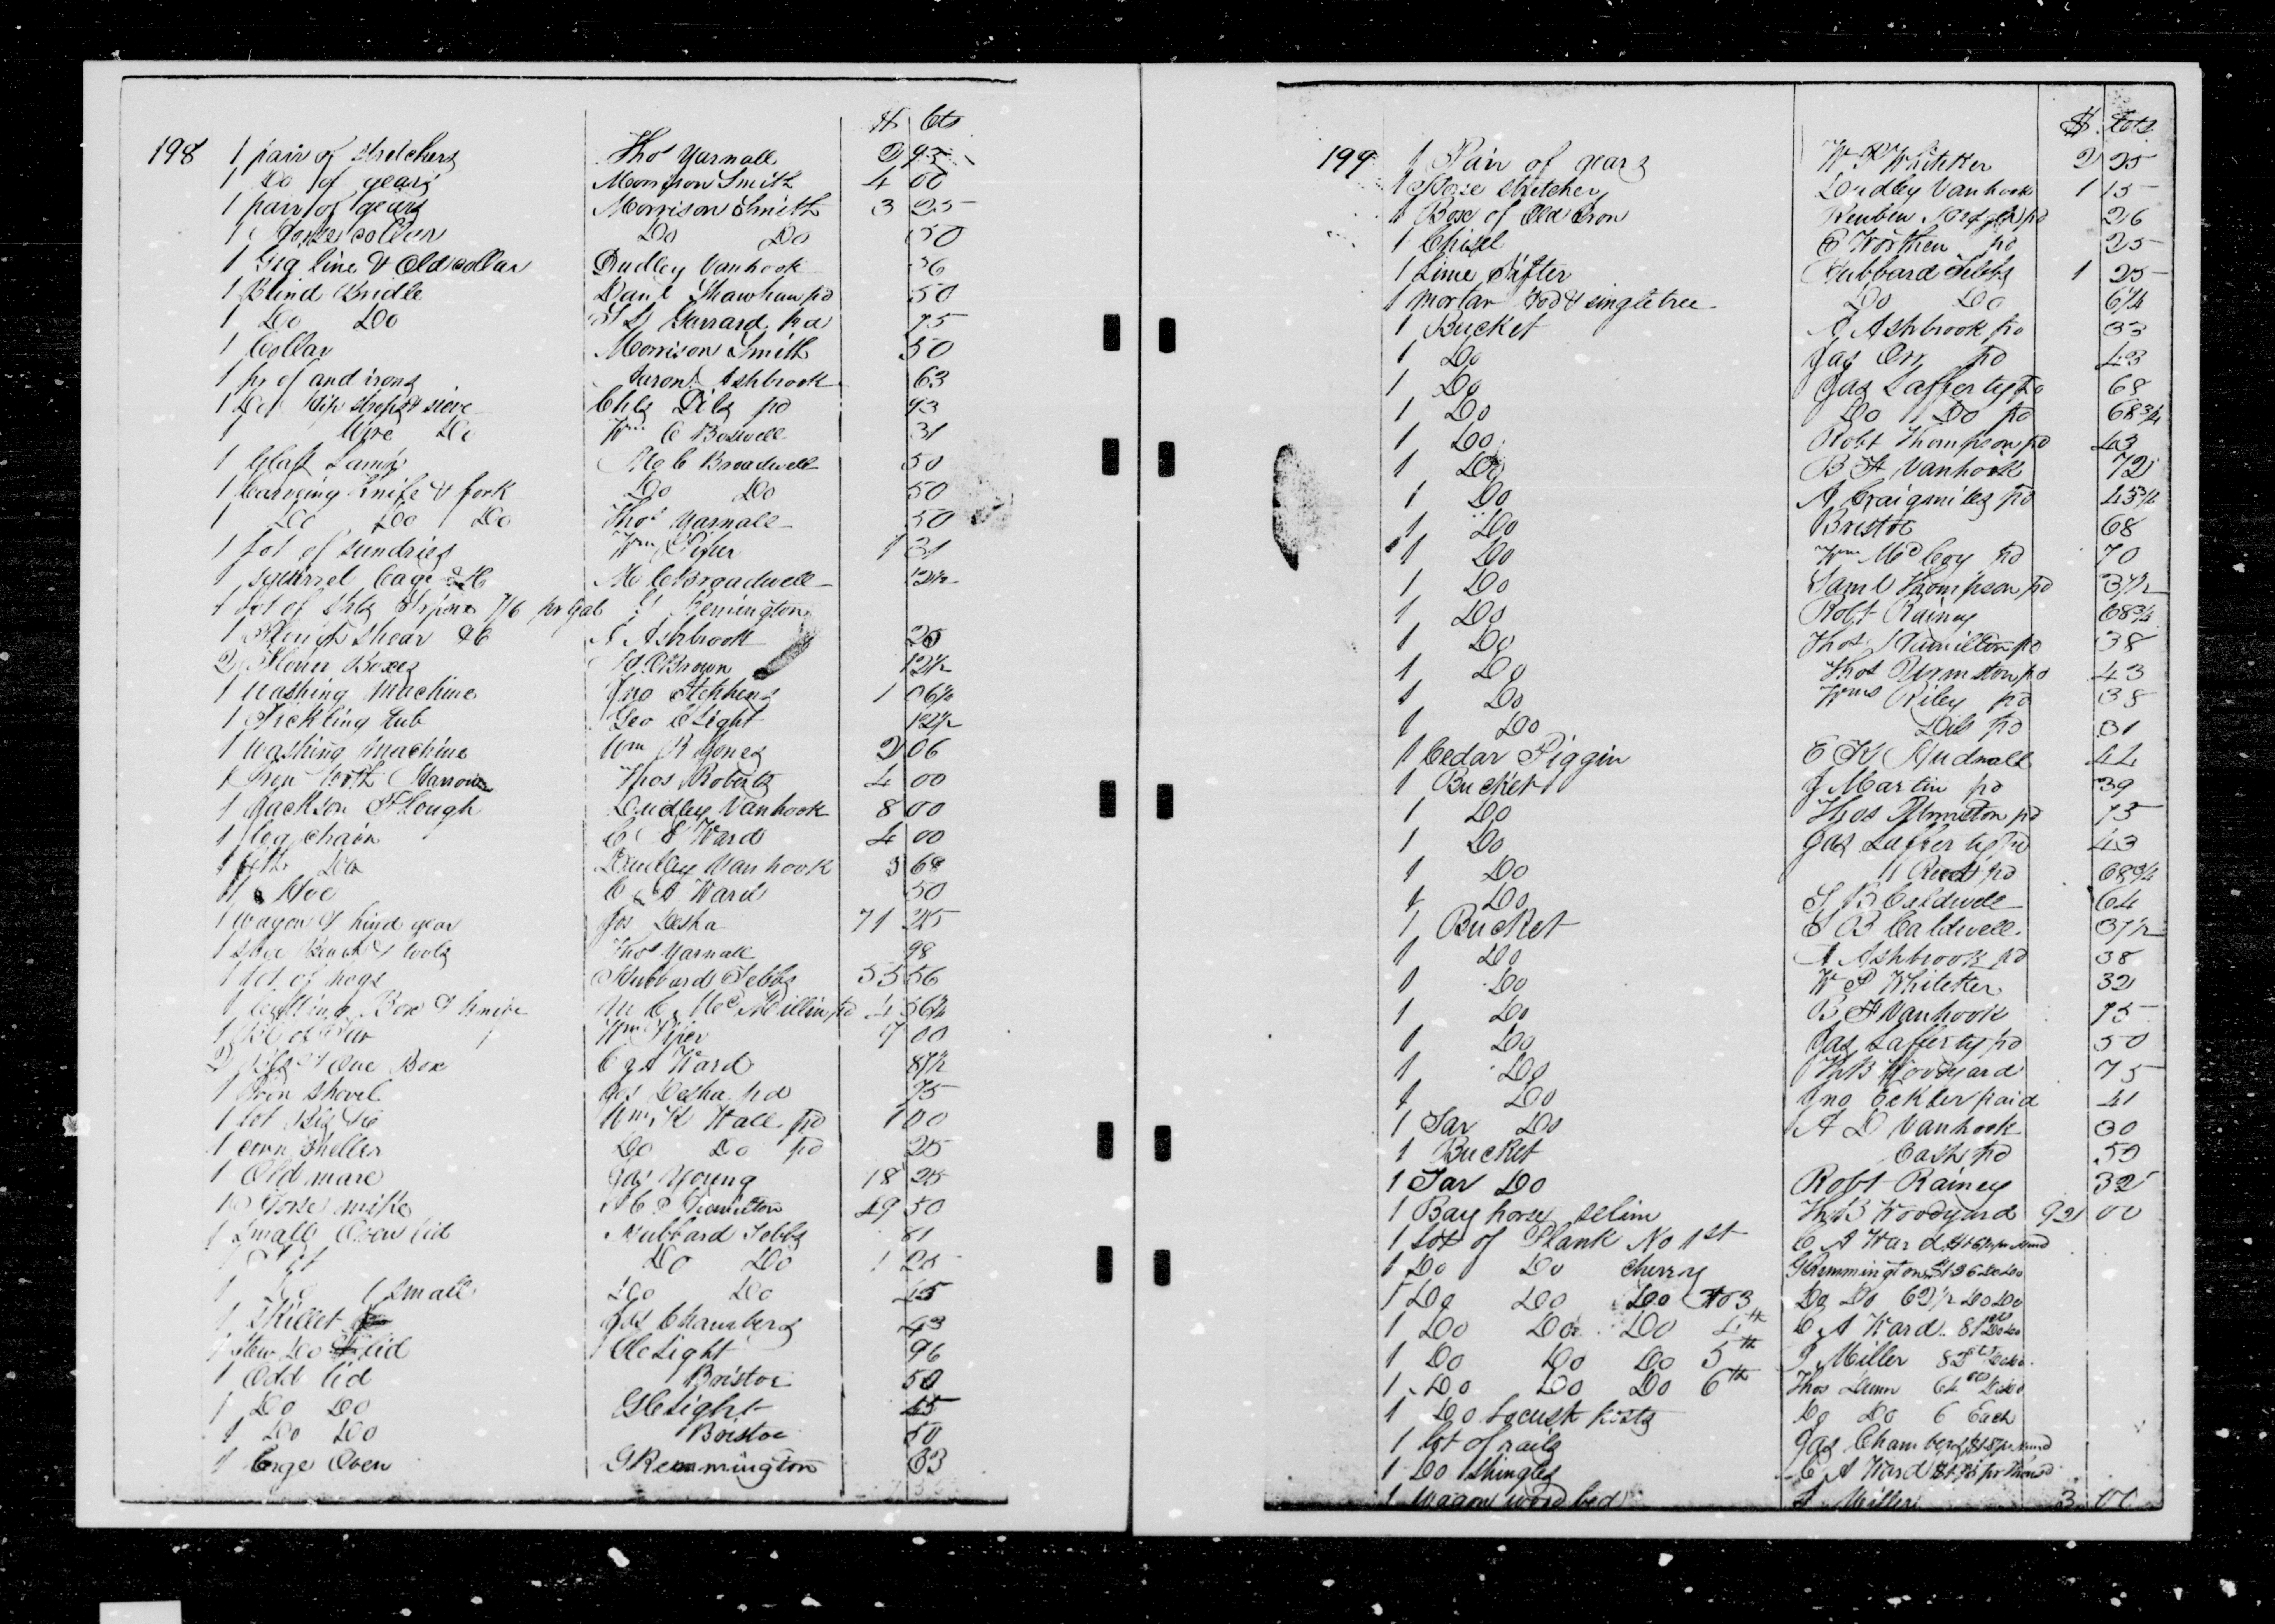 $ Cts
198 1 pair of stretchers Thos Yarnall 2 93
1 Do of gears Morrison Smith 4 00
1 pair of gears Morrison Smith 3 25
1 Horse collar Do Do 50
1 Gig line & Old collar Dudley Vanhook 36
1 Blind Bridle Danl Shawhan pd 50
1 Do Do Garrard pd 75
1 Collar Morrison Smith 50
1 pr of andirons Aaron Ashbrook 63
1 Do sieve Chls Dils pd 93
1 Wire Do Wm C Boswell 31
1 Glass Lamp C Broadwell 50
1 Carveing Knife & fork Do Do 50
1 Do Do Do Thos Yarnall 50
1 Lot of sundries Wm Piper 1 31
1 Squirrel Cage &C C Broadwell 12½
1 Lot of 7/6 pr Gal Remington
1 Plough shear &C A Ashbrook 25
2 Flour Boxes Brown 12½
1 Washing Machine Jno Stephens 1 06½
1 Pickling tub Geo C Light 12½
1 Washing Machine Wm R Jones 2 06
1 Iron Tooth Harrow Thos Roberts 4 00
1 Jackson Plough Dudley Vanhook 8 00
1 log chain C A Ward 4 00
1 Do Dudley Vanhook 3 68
1 Hoe C A Ward 50
1 Wagon & hind gear Jos Desha 71 25
1 Shoe Bench & tools Thos Yarnall 98
1 Lot of hogs Hubbard Tebbs 55 56
1 Cutting Box & knife Mc Millin pd 4 56¼
1 Wm Piper 7 00
2 One Box C A Ward 87½
1 shovel Jos Desha pd 75
1 Lot &C Wm K Wall pd 1 00
1 corn Sheller Do Do pd 25
1 Old mare Jas Young 18 25
1 Horse mike Hamilton 49 50
1 Small Oven lid Hubbard Tebbs 81
1 Pot Do Do 1 25
1 Do small Do Do 45
1 Skillet Jas Chambers 43
1 Stew Do & lid C Light 96
1 Odd lid Bristoe 50
1 Do Do G C Light 45
1 Do Do Bristoe 50
1 Large Oven G Remmington 63
$ Cts
199 1 Pair of gears W P Whiteker 2 25
1 Horse stretcher Dudley Vanhook 1 15
1 Box of Old Iron Reuben pd 26
1 Chisel E Worthen pd 25
1 Lime Sifter Hubbard Tebbs 1 25
1 Mortar Hod & singletree Do Do 6¼
1 Bucket A Ashbrook pd 33
1 Do Jas Orr pd 43
1 Do Jas Lafferty pd 68
1 Do Do Do pd 68¾
1 Do Robt Thompson pd 43
1 Do B F Vanhook 72
1 Do A Craigmiles pd 43¾
1 Do Bristoe 68
1 Do Wm McCoy pd 70
1 Do Saml Thompson pd 37½
1 Do Robt Rainey 68¾
1 Do Thos Hamilton pd 38
1 Do Thos Urmston pd 43
1 Do Wms Riley pd 38
1 Do Dils pd 31
1 Cedar Piggin E K Hudnall 44
1 Bucket J Martin pd 39
1 Do Thos Urmston pd 75
1 Do Jas Lafferty pd 43
1 Do " Reed pd 68¾
1 Do S B Caldwell 64
1 Bucket S B Caldwell 37½
1 Do A Ashbrook pd 38
1 Do W P Whiteker 32
1 Do B F Vanhook 75
1 Do Jas Lafferty pd 50
1 Do Th B Woodyard 75
1 Do Jno Eckler paid 41
1 Tar Do A D Vanhook 30
1 Bucket Cash pd 50
1 Tar Do Robt Rainey 32
1 Bay horse selim Th B Woodyard 92 00
1 Lot of Plank No 1st C A Ward
1 Do Do Cherry G Remmington
1 Do Do Do No 3 Do Do 62½ Do Do
1 Do Do Do 4th C A Ward 81 Do Do
1 Do Do Do 5th J Miller
1 Do Do Do 6th Thos Dunn 64
1 Do Locust posts Do Do 6 Each
1 Lot of rails Jas Chambers
1 Do Shingles C A Ward
1 Wagon wood bed Miller 3 00